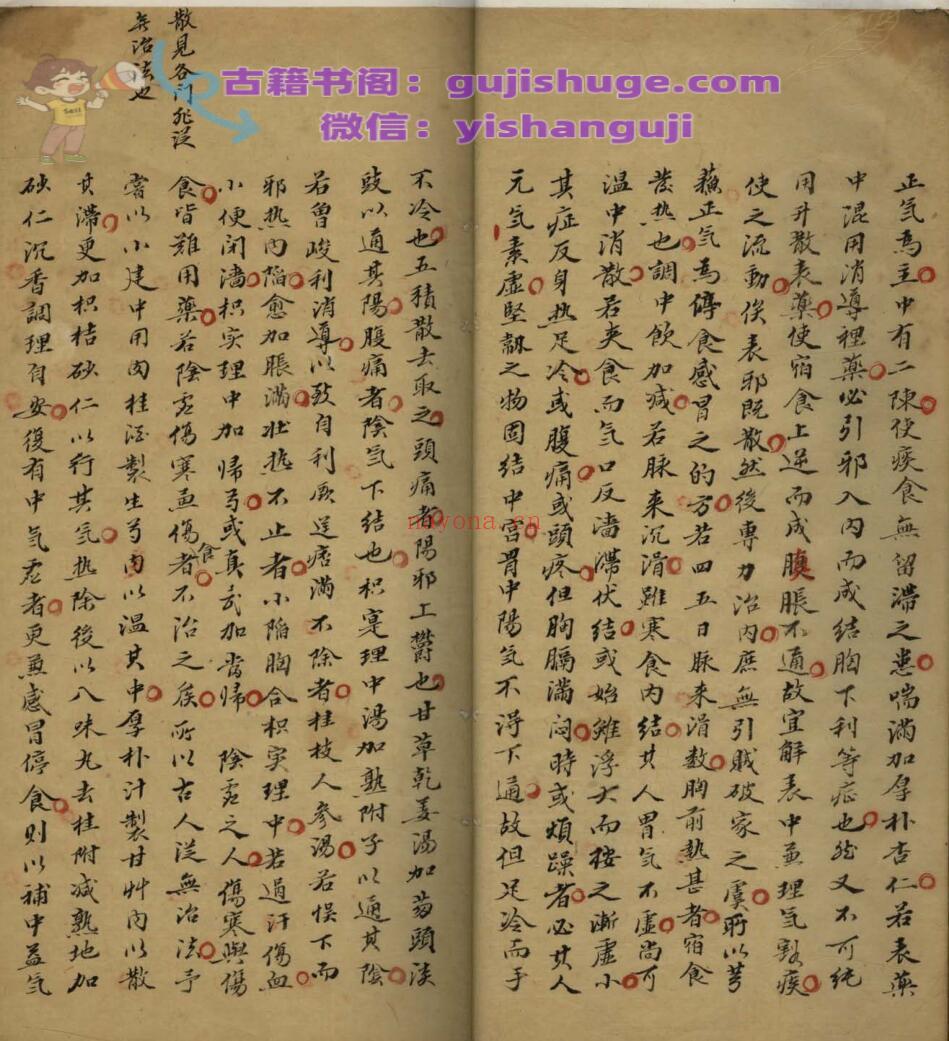 正气為主中有二陳使痰食無留滯之患喘滿加厚朴杏仁若表藥
中混用消導裡藥必引邪入內而成結胸下利等症也然又不可純
用升散表藥使宿食上逆而成腹脹不通故宜解表中兼理气豁痰
使之流動俟表邪既散然後專力治內庶無引賊破家之虞所以芎
蘓正气為停食感冒之的方若四五日脉来滑数胸前热甚者宿食
發热也調中飲加减若脉来沉滑雖寒食內结其人胃气不虛尚可
温中消散若夹食而气口反濇滯伏结或始雖浮大而按之漸虛小
其症反身热足冷或腹痛或頭疼但胸膈滿闷時或煩躁者必其人
元气素虛堅韌之物固结中宫胃中陽气不淂下通故但足冷而手
不冷也五積散去取之頭痛者陽邪上欝也甘草乾姜湯加葱頭淡
豉以通其陽腹痛者陰气下结也枳寔理中湯加熟附子以通其陰
若曾峻利消導以致自利厥逆痞滿不除者桂枝人參湯若悮下而
邪热內陷愈加脹滿壯热不止者小陷胸合枳实理中若過汗傷血
小便闭濇枳实理中加归芍或真武加當归 陰虛之人傷寒與傷
食皆難用藥若陰虛傷寒兼傷食者不治之候所以古人從無治法予
嘗以小建中用肉桂酒製生芍內以温其中厚朴汁製甘艸內以散
其滯更加枳桔砂仁以行其气热除後以八味丸去桂附减熟地加
砂仁沉香調理自安復有中气虛者更兼感冒停食則以補中益气
散見各门非從
無治法也
古籍书阁：gujishuge.com
微信：yishanguji
nayona.cn